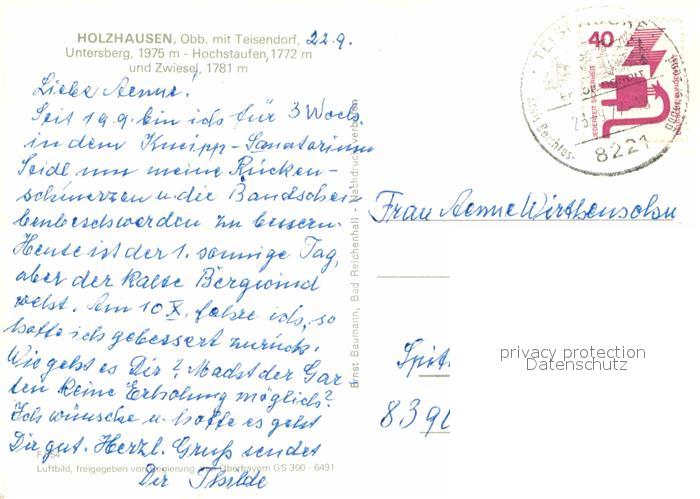 HOLZHAUSEN, Obb. mit Teisendorf, 22.9.
Untersberg, 1975 m - Hochstaufen, 1772 m
und Zwiesel, 1781 m
Liebe Aenne!
Seit 19.9. bin ich für 3 Woch.
in dem Kneipp-Sanatorium
Seidl um meine Rücken-
schmerzen u. die Bandscheiben
beschwerden zu bessern.
Heute ist der 1. sonnige Tag,
aber der kalte Bergwind
weht. Am 10. X. fahre ich, so
hoffe ich gebessert zurück.
Wie geht es Dir? Macht der Gar-
ten keine Erholung möglich?
Ich wünsche u. hoffe es geht
Dir gut. Herzl. Gruß sendet
Dir
Luftbild, freigegeben von Regierung von Oberbayern GS 300 - 6491
Ernst Baumann, Bad Reichenhall - Nachdruck verboten
40
JEDERZEIT SICHERHEIT
8221
Frau Aenne Wirthensohn
839
privacy protection
Datenschutz